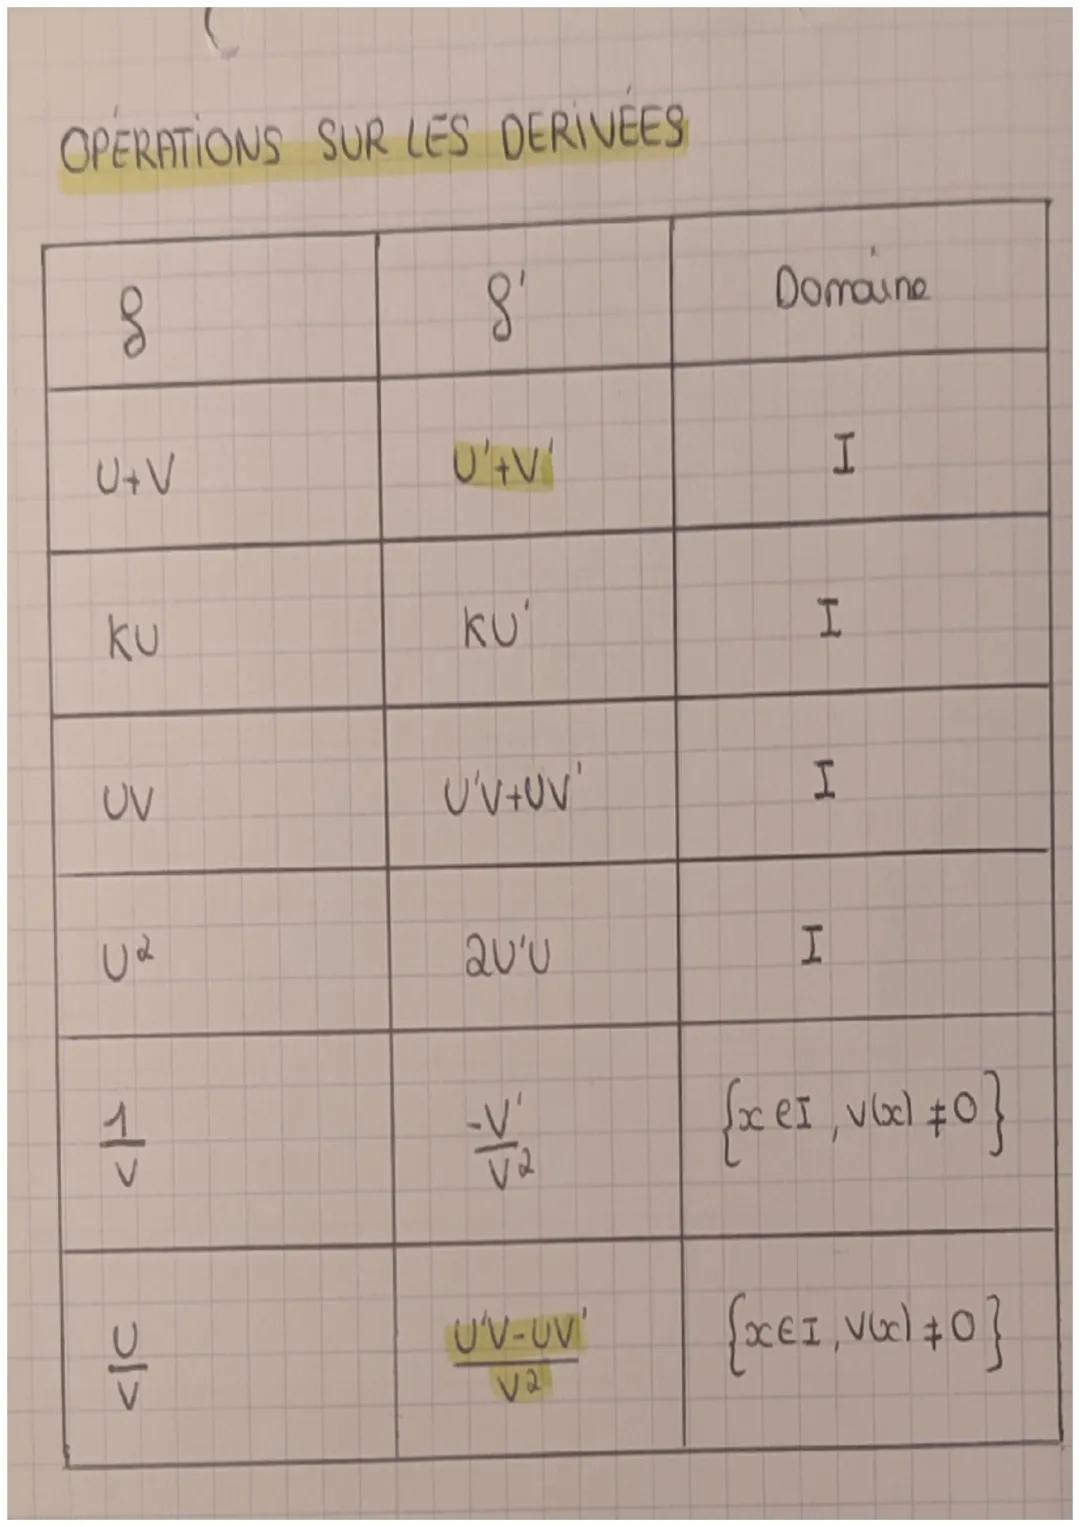 OPÉRATIONS SUR LES DERIVÉES
f f' Domaine
U+V U'+V' I
KU KU' I
UV U'V+UV' I
U² 2U'U I
1/V -V'/V² {x∈I, V(x)≠0}
U/V U'V-UV'/V² {x∈I, V(x)≠0}